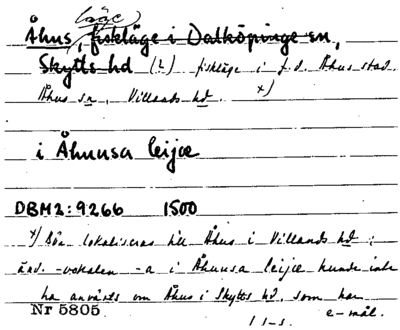 läge
Åhus, fiskläge i Dalköpinge sn,
Skytts hd (?) fiskläge i f.d. Åhus stad
Åhus sn, Villands hd. x)
i Åhunsa leijæ
DBM2:9266 1500
x) Bör lokaliseras till Åhus i Villands hd;
änd.-vokalen -a i Åhunsa leijæ kunde inte
ha använts om Åhus i Skytts hd, som har
e-mål.
Nr 5805